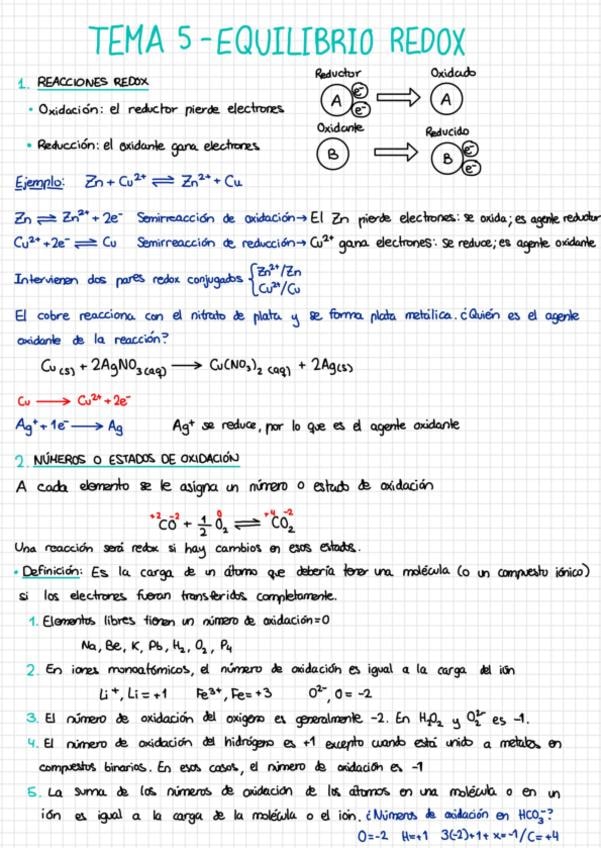 TEMA 5 - EQUILIBRIO REDOX
1. REACCIONES REDOX
Reductor Oxidado
• Oxidación: el reductor pierde electrones
A e⁻ e⁻ ⇒ A
Oxidante Reducido
• Reducción: el oxidante gana electrones
B ⇒ B e⁻ e⁻
Ejemplo: Zn + Cu²⁺ ⇌ Zn²⁺ + Cu
Zn ⇌ Zn²⁺ + 2e⁻ Semirreacción de oxidación → El Zn pierde electrones: se oxida; es agente reductor
Cu²⁺ + 2e⁻ ⇌ Cu Semirreacción de reducción → Cu²⁺ gana electrones: se reduce; es agente oxidante
Intervienen dos pares redox conjugados { Zn²⁺/Zn
Cu²⁺/Cu
El cobre reacciona con el nitrato de plata y se forma plata metálica. ¿Quién es el agente
oxidante de la reacción?
Cu (s) + 2AgNO₃ (aq) → Cu(NO₃)₂ (aq) + 2Ag(s)
Cu → Cu²⁺ + 2e⁻
Ag⁺ + 1e⁻ → Ag Ag⁺ se reduce, por lo que es el agente oxidante
2. NÚMEROS O ESTADOS DE OXIDACIÓN
A cada elemento se le asigna un número o estado de oxidación
+2 -2 0 +4 -2
CO + 1/2 O₂ ⇌ CO₂
Una reacción será redox si hay cambios en esos estados.
• Definición: Es la carga de un átomo que debería tener una molécula (o un compuesto iónico)
si los electrones fueran transferidos completamente.
1. Elementos libres tienen un número de oxidación=0
Na, Be, K, Pb, H₂, O₂, P₄
2. En iones monoatómicos, el número de oxidación es igual a la carga del ión
Li⁺, Li = +1 Fe³⁺, Fe= +3 O²⁻, O = -2
3. El número de oxidación del oxígeno es generalmente -2. En H₂O₂ y O₂²⁻ es -1.
4. El número de oxidación del hidrógeno es +1 excepto cuando está unido a metales en
compuestos binarios. En esos casos, el número de oxidación es -1
5. La suma de los números de oxidación de los átomos en una molécula o en un
ión es igual a la carga de la molécula o el ion. ¿Números de oxidación en HCO₃⁻?
O=-2 H=+1 3(-2)+1+x=-1/C=+4